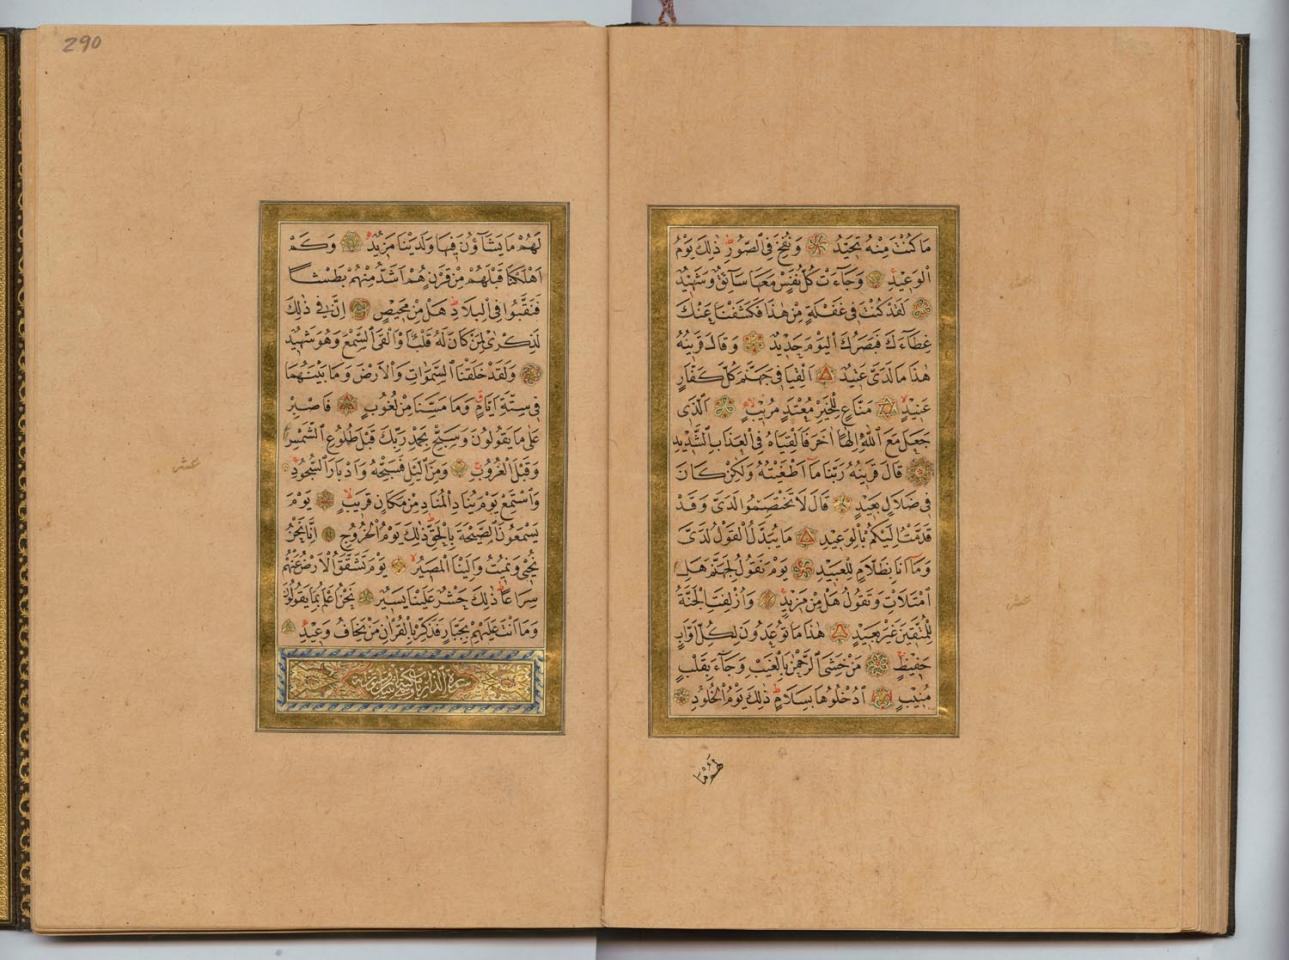 مَا كُنْتَ مِنْهُ تَحٖيدُ وَنُفِخَ فِي الصُّورِ ذٰلِكَ يَوْمُ
الْوَعٖيدِ وَجَٓاءَتْ كُلُّ نَفْسٍ مَعَهَا سَٓائِقٌ وَشَهٖيدٌ
لَقَدْ كُنْتَ فٖي غَفْلَةٍ مِنْ هٰذَا فَكَشَفْنَا عَنْكَ
غِطَٓاءَكَ فَبَصَرُكَ الْيَوْمَ حَدٖيدٌ وَقَالَ قَرٖينُهُ
هٰذَا مَا لَدَيَّ عَتٖيدٌ اَلْقِيَا فٖي جَهَنَّمَ كُلَّ كَفَّارٍ
عَنٖيدٍ مَنَّاعٍ لِلْخَيْرِ مُعْتَدٍ مُرٖيبٍ اَلَّذٖي
جَعَلَ مَعَ اللّٰهِ اِلٰهًا اٰخَرَ فَاَلْقِيَاهُ فِي الْعَذَابِ الشَّدٖيدِ
قَالَ قَرٖينُهُ رَبَّنَا مَٓا اَطْغَيْتُهُ وَلٰكِنْ كَانَ
فٖي ضَلَالٍ بَعٖيدٍ قَالَ لَا تَخْتَصِمُوا لَدَيَّ وَقَدْ
قَدَّمْتُ اِلَيْكُمْ بِالْوَعٖيدِ مَا يُبَدَّلُ الْقَوْلُ لَدَيَّ
وَمَٓا اَنَا بِظَلَّامٍ لِلْعَبٖيدِ يَوْمَ نَقُولُ لِجَهَنَّمَ هَلِ
امْتَلَاْتِ وَتَقُولُ هَلْ مِنْ مَزٖيدٍ وَاُزْلِفَتِ الْجَنَّةُ
لِلْمُتَّقٖينَ غَيْرَ بَعٖيدٍ هٰذَا مَا تُوعَدُونَ لِكُلِّ اَوَّابٍ
حَفٖيظٍ مَنْ خَشِيَ الرَّحْمٰنَ بِالْغَيْبِ وَجَٓاءَ بِقَلْبٍ
مُنٖيبٍ اُدْخُلُوهَا بِسَلَامٍ ذٰلِكَ يَوْمُ الْخُلُودِ
لَهُمْ مَا
عشر
290
لَهُمْ مَا يَشَٓاؤُنَ فٖيهَا وَلَدَيْنَا مَزٖيدٌ وَكَمْ
اَهْلَكْنَا قَبْلَهُمْ مِنْ قَرْنٍ هُمْ اَشَدُّ مِنْهُمْ بَطْشًا
فَنَقَّبُوا فِي الْبِلَادِ هَلْ مِنْ مَحٖيصٍ اِنَّ فٖي ذٰلِكَ
لَذِكْرٰى لِمَنْ كَانَ لَهُ قَلْبٌ اَوْ اَلْقَى السَّمْعَ وَهُوَ شَهٖيدٌ
وَلَقَدْ خَلَقْنَا السَّمٰوَاتِ وَالْاَرْضَ وَمَا بَيْنَهُمَا
فٖي سِتَّةِ اَيَّامٍ وَمَا مَسَّنَا مِنْ لُغُوبٍ فَاصْبِرْ
عَلٰى مَا يَقُولُونَ وَسَبِّحْ بِحَمْدِ رَبِّكَ قَبْلَ طُلُوعِ الشَّمْسِ
وَقَبْلَ الْغُرُوبِ وَمِنَ الَّيْلِ فَسَبِّحْهُ وَاَدْبَارَ السُّجُودِ
وَاسْتَمِعْ يَوْمَ يُنَادِ الْمُنَادِ مِنْ مَكَانٍ قَرٖيبٍ يَوْمَ
يَسْمَعُونَ الصَّيْحَةَ بِالْحَقِّ ذٰلِكَ يَوْمُ الْخُرُوجِ اِنَّا نَحْنُ
نُحْيٖي وَنُمٖيتُ وَاِلَيْنَا الْمَصٖيرُ يَوْمَ تَشَقَّقُ الْاَرْضُ عَنْهُمْ
سِرَاعًا ذٰلِكَ حَشْرٌ عَلَيْنَا يَسٖيرٌ نَحْنُ اَعْلَمُ بِمَا يَقُولُونَ
وَمَٓا اَنْتَ عَلَيْهِمْ بِجَبَّارٍ فَذَكِّرْ بِالْقُرْاٰنِ مَنْ يَخَافُ وَعٖيدِ
سورة الذاريات
عشر